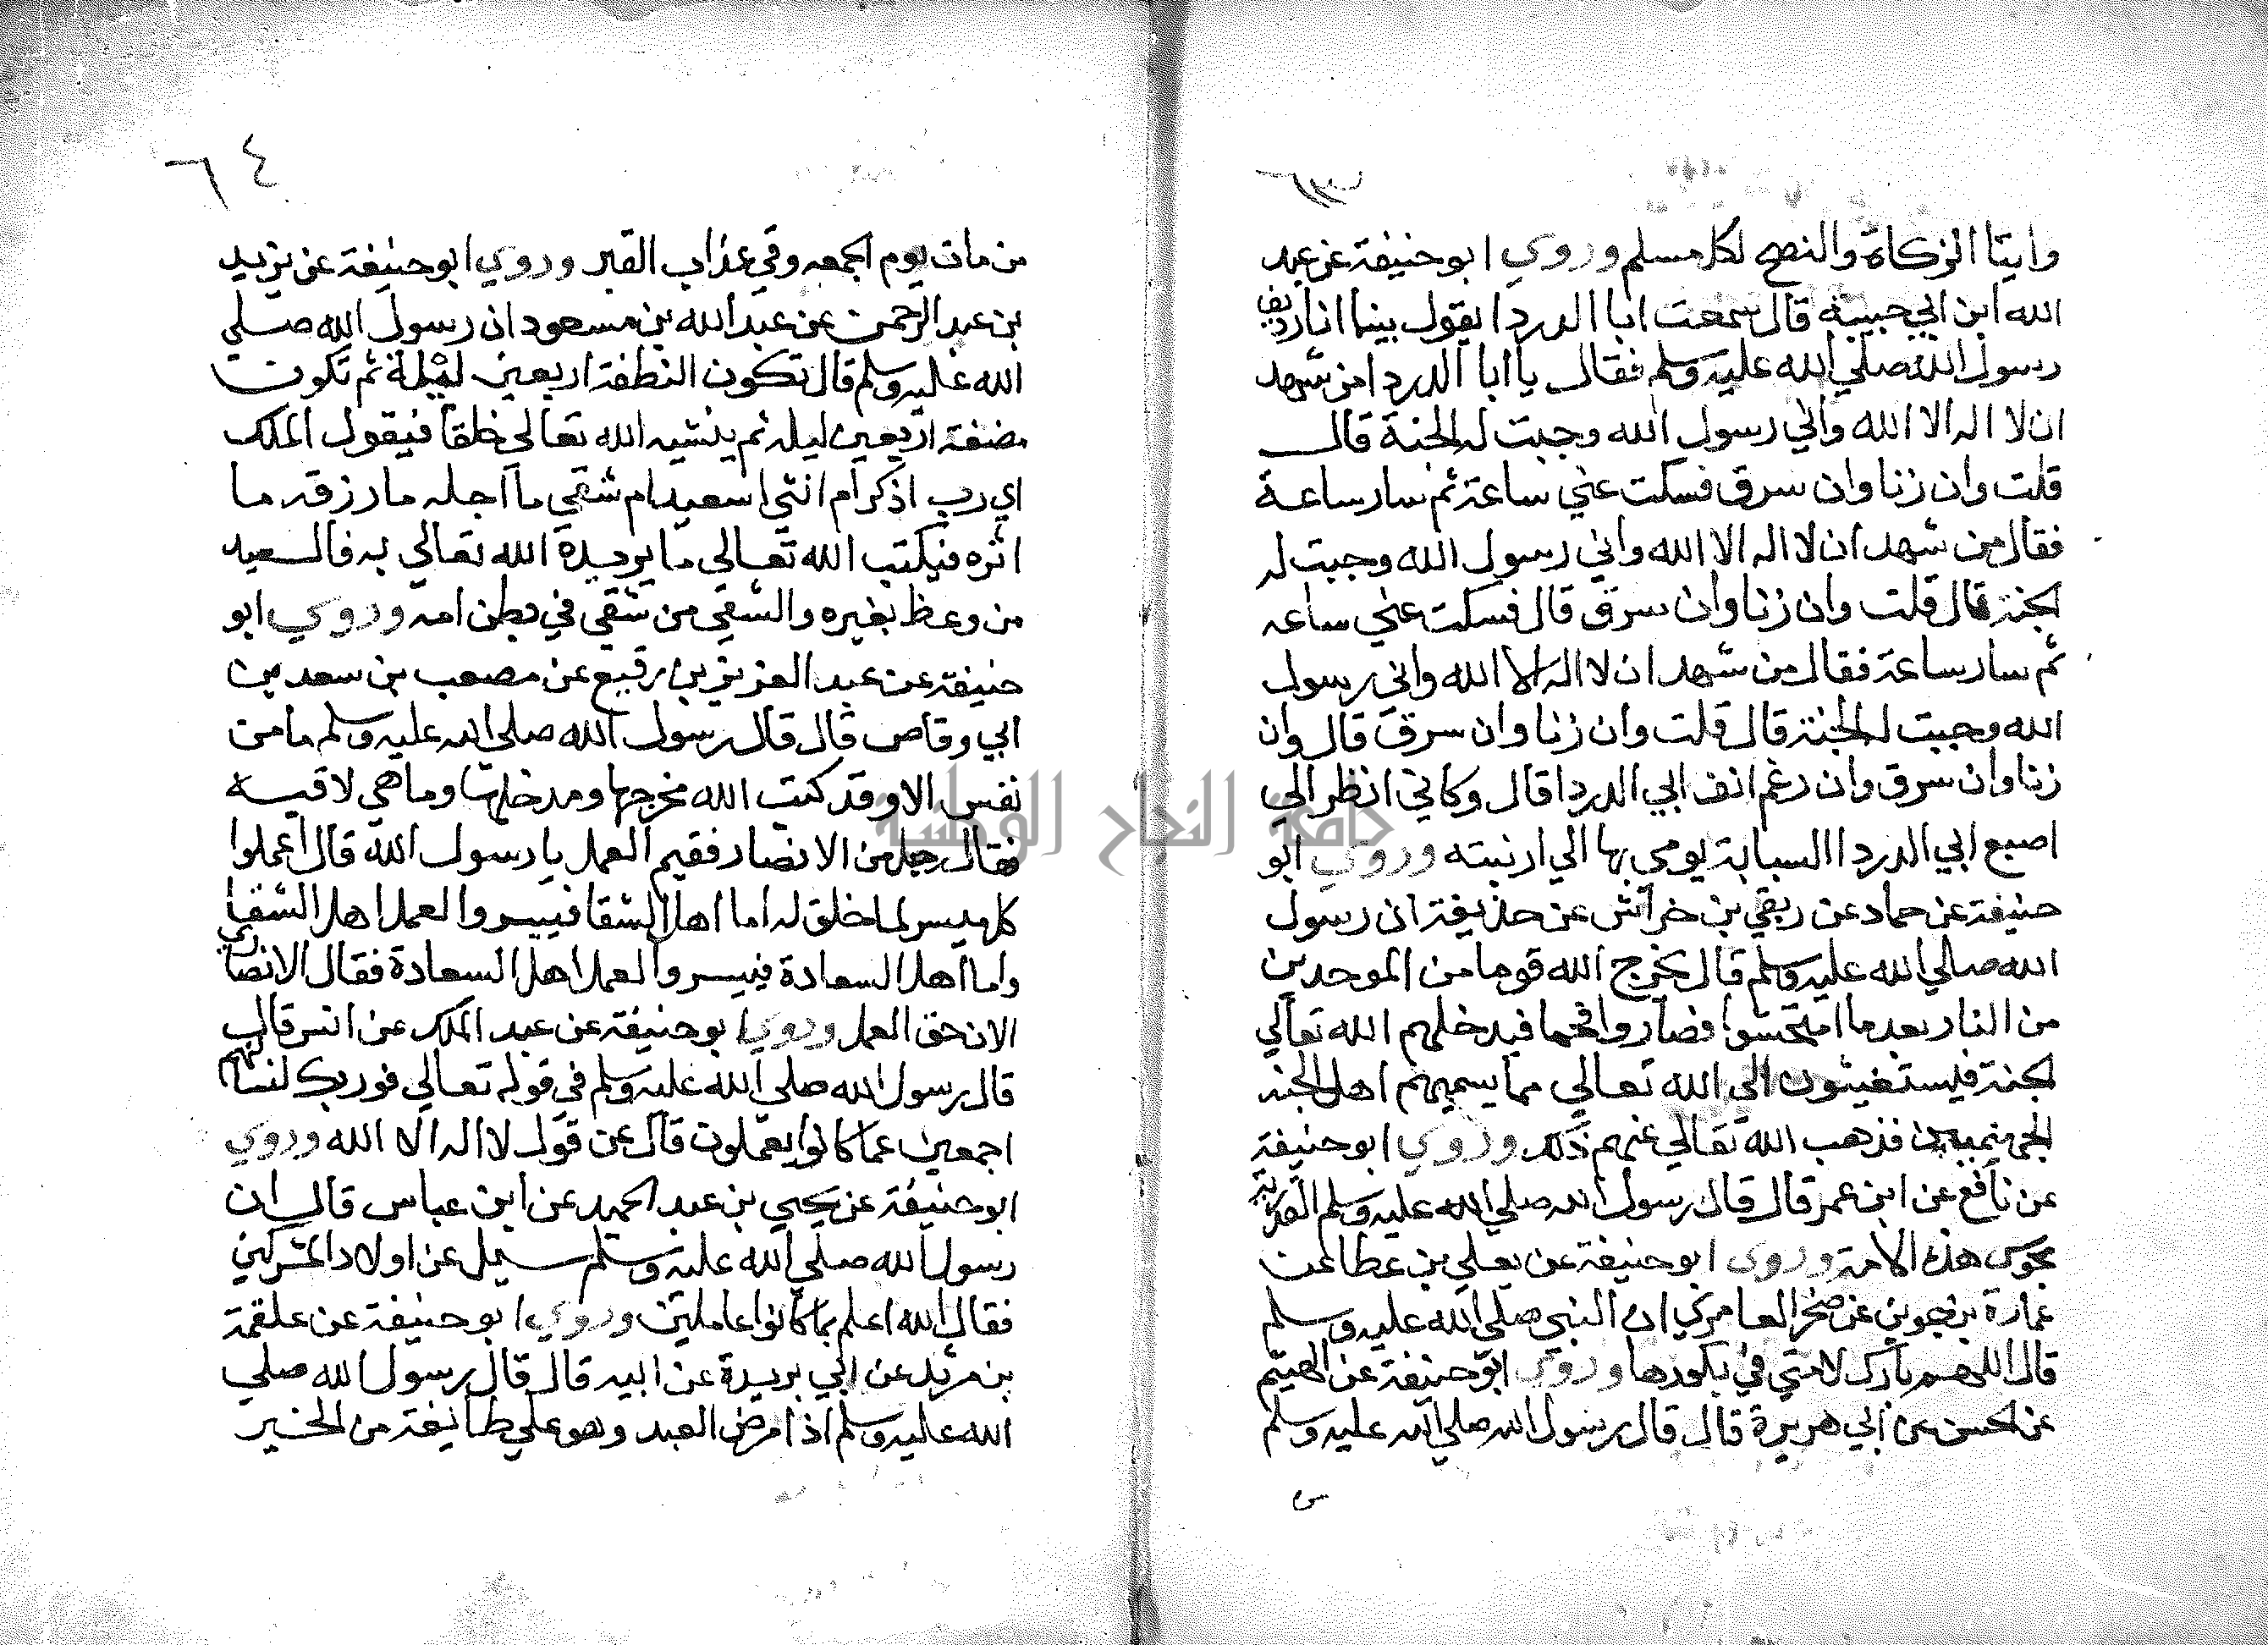 ٦٣
وايتا الزكاة والنصح لكل مسلم وروي ابو حنيفة عن عبد
الله ابن ابي حبيبة قال سمعت ابا الدردا يقول بينما انا رديف
رسول الله صلي الله عليه وسلم فقال يا ابا الدردا من شهد
ان لا اله الا الله واني رسول الله وجبت له الجنة قال
قلت وان زنا وان سرق فسكت عني ساعة ثم سار ساعة
فقال من شهد ان لا اله الا الله واني رسول الله وجبت له
الجنة قال قلت وان زنا وان سرق قال فسكت عني ساعه
ثم سار ساعة فقال من شهد ان لا اله الا الله واني رسول
الله وجبت له الجنة قال قلت وان زنا وان سرق قال وان
زنا وان سرق وان رغم انف ابي الدردا قال وكاني انظر الي
اصبع ابي الدردا السبابة يومي بها الي ارنبته وروي ابو
حنيفة عن حماد عن ربعي بن خراش عن حذيفة ان رسول
الله صلي الله عليه وسلم قال يخرج الله قوما من الموحدين
من النار بعد ما امتحشوا فصاروا فحما فيدخلهم الله تعالي
الجنة فيستغيثون الي الله تعالي مما يسميهم اهل الجنه
الجهنميين فذهب الله تعالي عنهم ذلك وروي ابو حنيفة
عن نافع عن ابن عمر قال قال رسول الله صلي الله عليه وسلم القدرية
مجوس هذه الامة وروي ابو حنيفة عن يعلي بن عطا عن
عمارة بن عن صخر العامري ان النبي صلي الله عليه وسلم
قال اللهم بارك لامتي في بكورها وروي ابو حنيفة عن الهيثم
عن الحسن عن ابي هريرة قال قال رسول الله صلي الله عليه وسلم
من
٦٤
من مات يوم الجمعه وقي عذاب القبر وروي ابو حنيفة عن يزيد
بن عبد الرحمن عن عبد الله بن مسعود ان رسول الله صلي
الله عليه وسلم قال تكون النطفة اربعين ليلة ثم تكون
مضغة اربعين ليله ثم ينشيه الله تعالي خلقا فيقول الملك
اي رب اذكر ام انثي اسعيد ام شقي ما اجله ما رزقه ما
اثره فيكتب الله تعالي ما يريده الله تعالي به فالسعيد
من وعظ بغيره والشقي من شقي في بطن امه وروي ابو
حنيفة عن عبد العزيز بن رفيع عن مصعب بن سعد بن
ابي وقاص قال قال رسول الله صلي الله عليه وسلم ما من
نفس الا وقد كتب الله مخرجها ومدخلها وما هي لاقيه
فقال رجل من الانصار ففيم العمل يا رسول الله قال اعملوا
كل ميسر لما خلق له اما اهل الشقا فييسروا لعمل اهل الشقا
واما اهل السعادة فييسروا لعمل اهل السعادة فقال الانصاري
الان حق العمل وروي ابو حنيفة عن عبد الملك عن انس قال
قال رسول الله صلي الله عليه وسلم في قوله تعالي فوربك لنسالنهم
اجمعين عما كانوا يعملون قال عن قول لا اله الا الله وروي
ابو حنيفة عن يحيي بن عبد الحميد عن ابن عباس قال ان
رسول الله صلي الله عليه وسلم سيل عن اولاد المشركين
فقال الله اعلم بما كانوا عاملين وروي ابو حنيفة عن علقمة
بن مرثد عن ابي بريدة عن ابيه قال قال رسول الله صلي
الله عليه وسلم اذا مرض العبد وهو علي طايفة من الخير
جامعة النجاح الوطنية